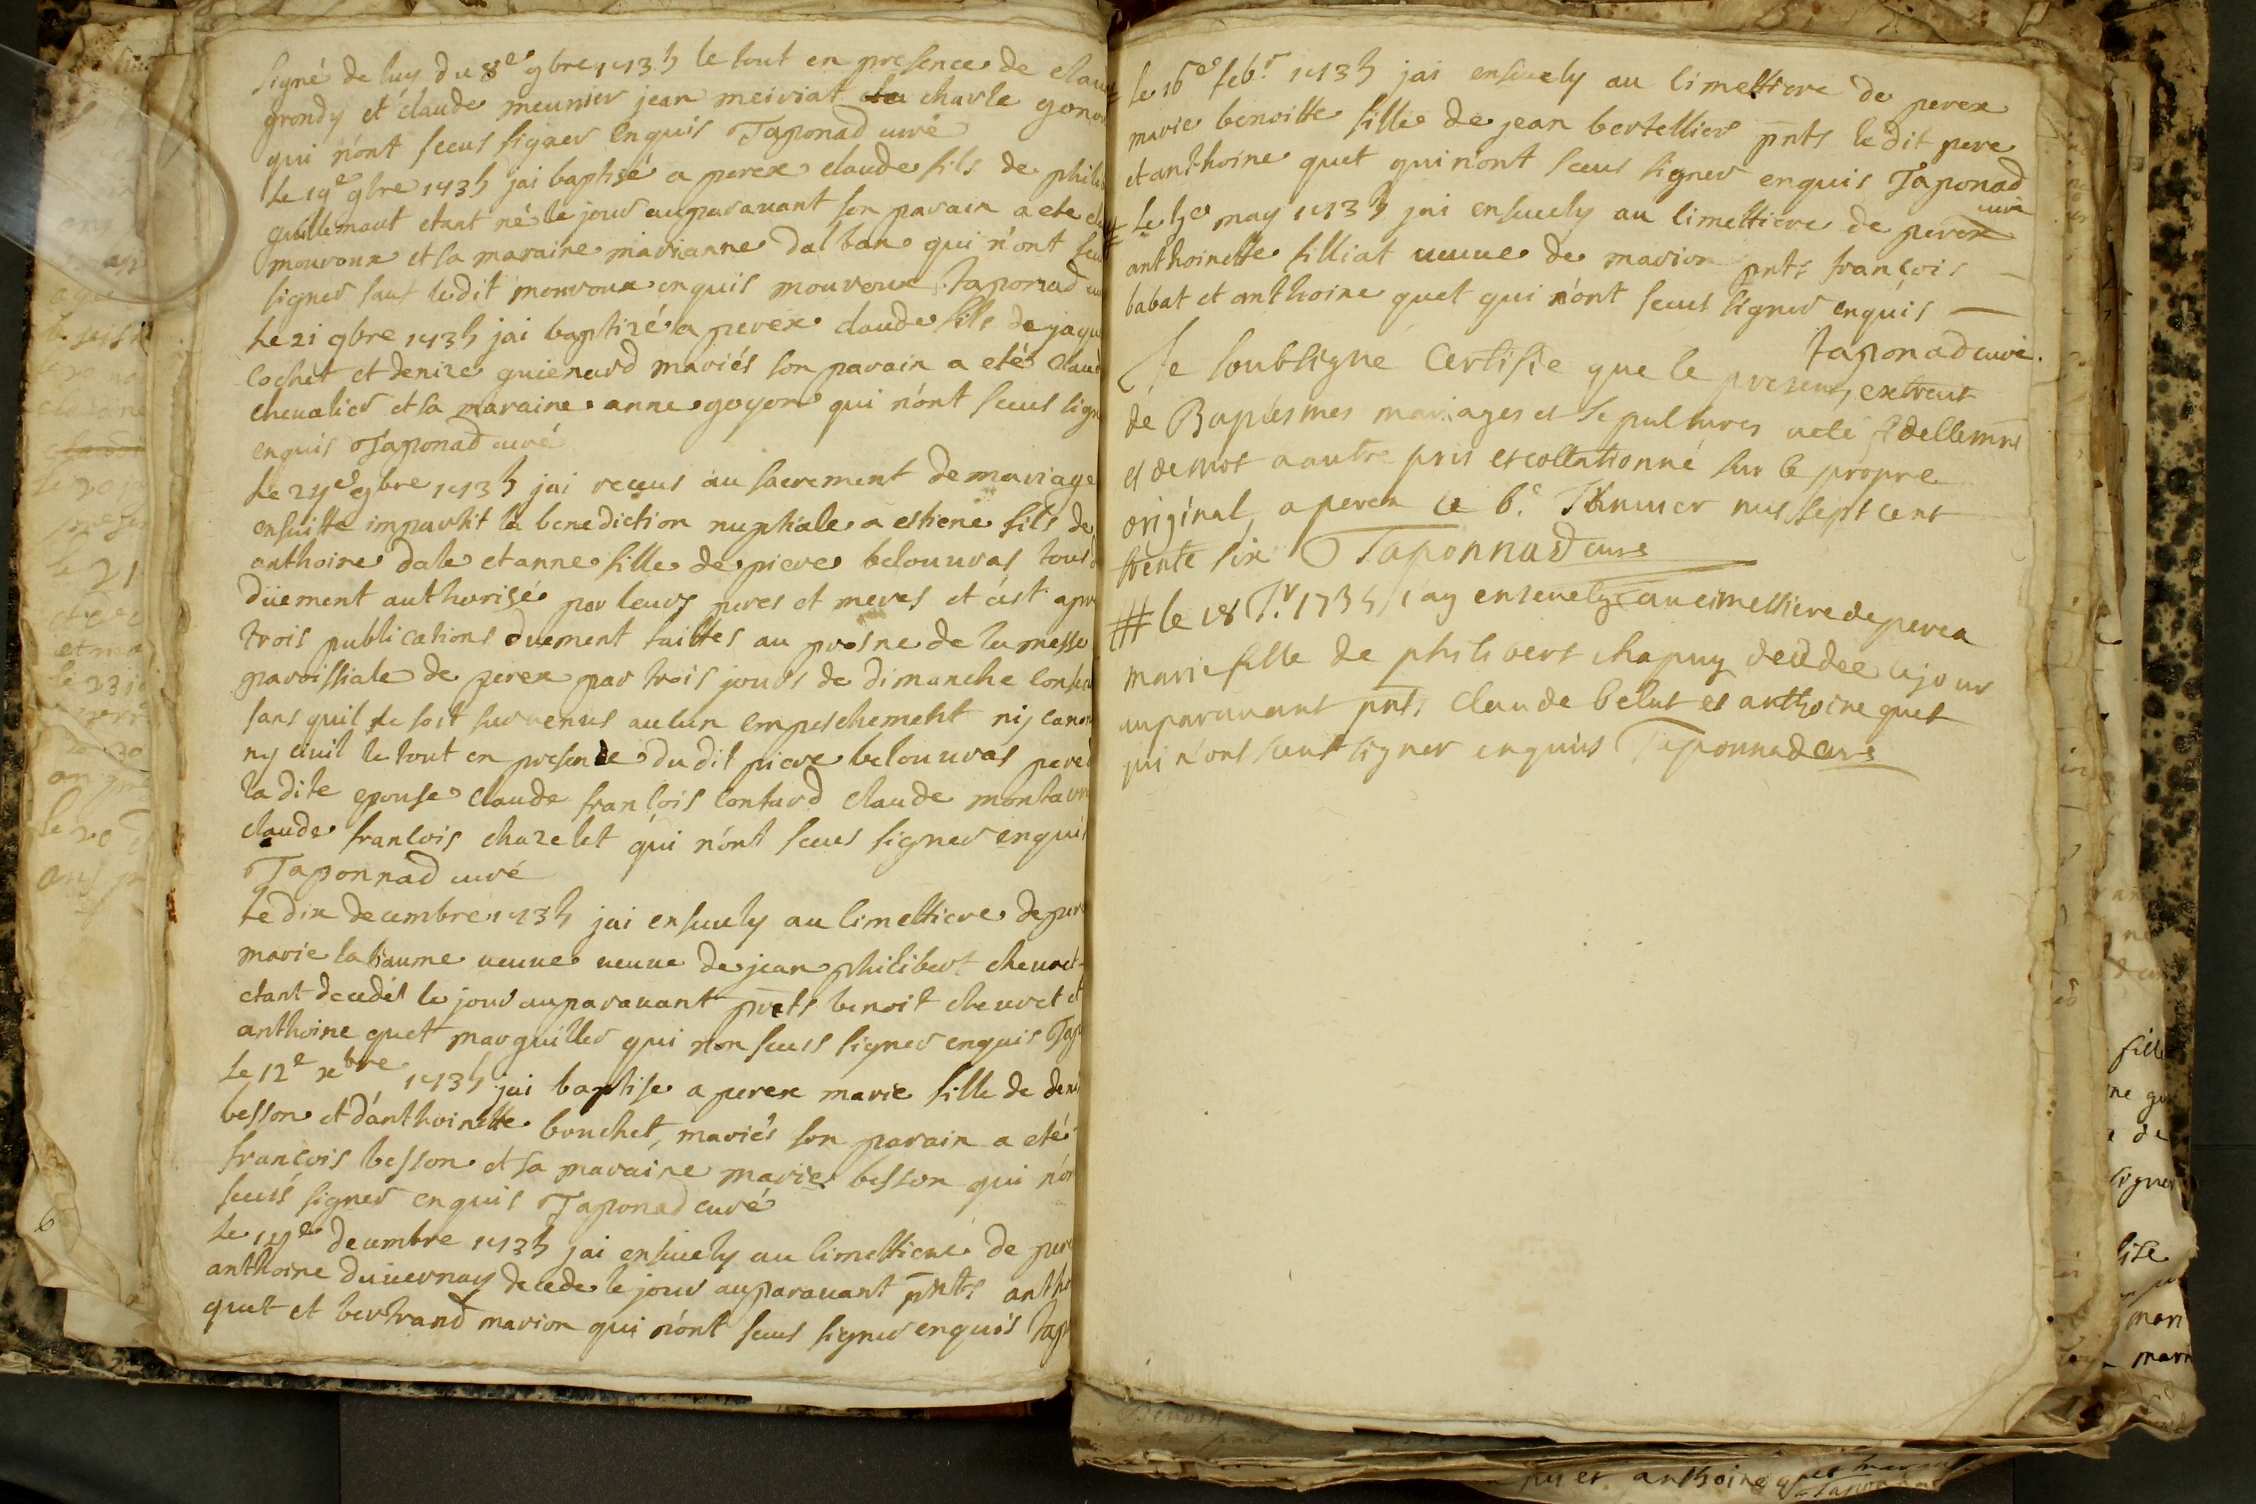 signé de luy du 8e 9bre 1735 le tout en presence de clau
grondy et claude meunier jean meiriat charle gono
qui n'ont sceus signer enquis Taponad curé
Le 19e 9bre 1735 jai baptisé a perex claude fils de phili
guillemaut etant né le jour auparavant son parain a ete
mouroux et sa maraine marianne dalban qui n'ont sceu
signer sauf ledit mouroux enquis mouroux Taponad
Le 21 9bre 1735 jai baptizé a perex claude fils de jaqu
cochet et denize guienard mariés son parain a eté claud
chevalier et sa maraine anne goyon qui n'ont sceus sign
enquis Taponad curé
Le 24e 9bre 1735 jai receus au sacrement de mariage
ensuitte impartit la benediction nuptiale a estiene fils de
anthoine dale et anne fille de piere belouuras tous
düement authorisés par leurs peres et meres et c'ést apr
trois publications duement faittes au prosne de la messe
paroissiale de perex par trois jours de dimanche consecu
sans quil se soit survenus aucun empeschement nij canon
ny civil le tout en presence du dit piere belouuras pere
ladite epouse claude françois contard claude monta
claude françois chazelet qui n'ont sceus signer enquis
Taponnad curé
Le dix decembre 1735 jai ensuuely au cimettiere de pere
marie la baume ueuue ueuue de jean philibert cheuret
etant decedés le jour auparauant pnts benoit cheuret et
anthoine quet marguiller qui non sceus signer enquis Tap
Le 12e xbre 1735 jai baptise a perex marie fille de deni
besson et d'anthoinette bouchet, mariés son parain a eté
françois besson et sa maraine marie besson qui n'on
sceus signer enquis Taponad curé
Le 14e decembre 1735 jai ensuuely au cimettiere de pere
anthoine duuernay decede le jour auparauant pnts antho
quet et bertrand marion qui n'ont sceus signer enquis Tap
# le 16e febr 1735 jai ensuuely au cimettiere de perex
marie benoitte fille de jean bertellier pnts ledit pere
et anthoine quet qui n'ont sceus signer enquis Taponad
curé
# Le 5e may 1735 jai ensuuely au cimettiere de perex
anthoinette filliat ueuue de marion pnts françois
babat et anthoine quet qui n'ont sceus signer enquis
Taponad curé.
Je soubsigné Certifie que le present extrait
de Baptesmes mariages et sepultures a eté fidellemnt
et de mot a autre pris et collationné sur le propre
original, a perex le 6e Januier mil sept cent
trente six Taponnad curé
# le 18 1735 j'ay enseuely au cimettiere de perex
marie fille de philibert chapuy decedee le jour
auparauant pnts claude belut et anthoine quet
qui n'ont sceut signer enquis Taponnad curé